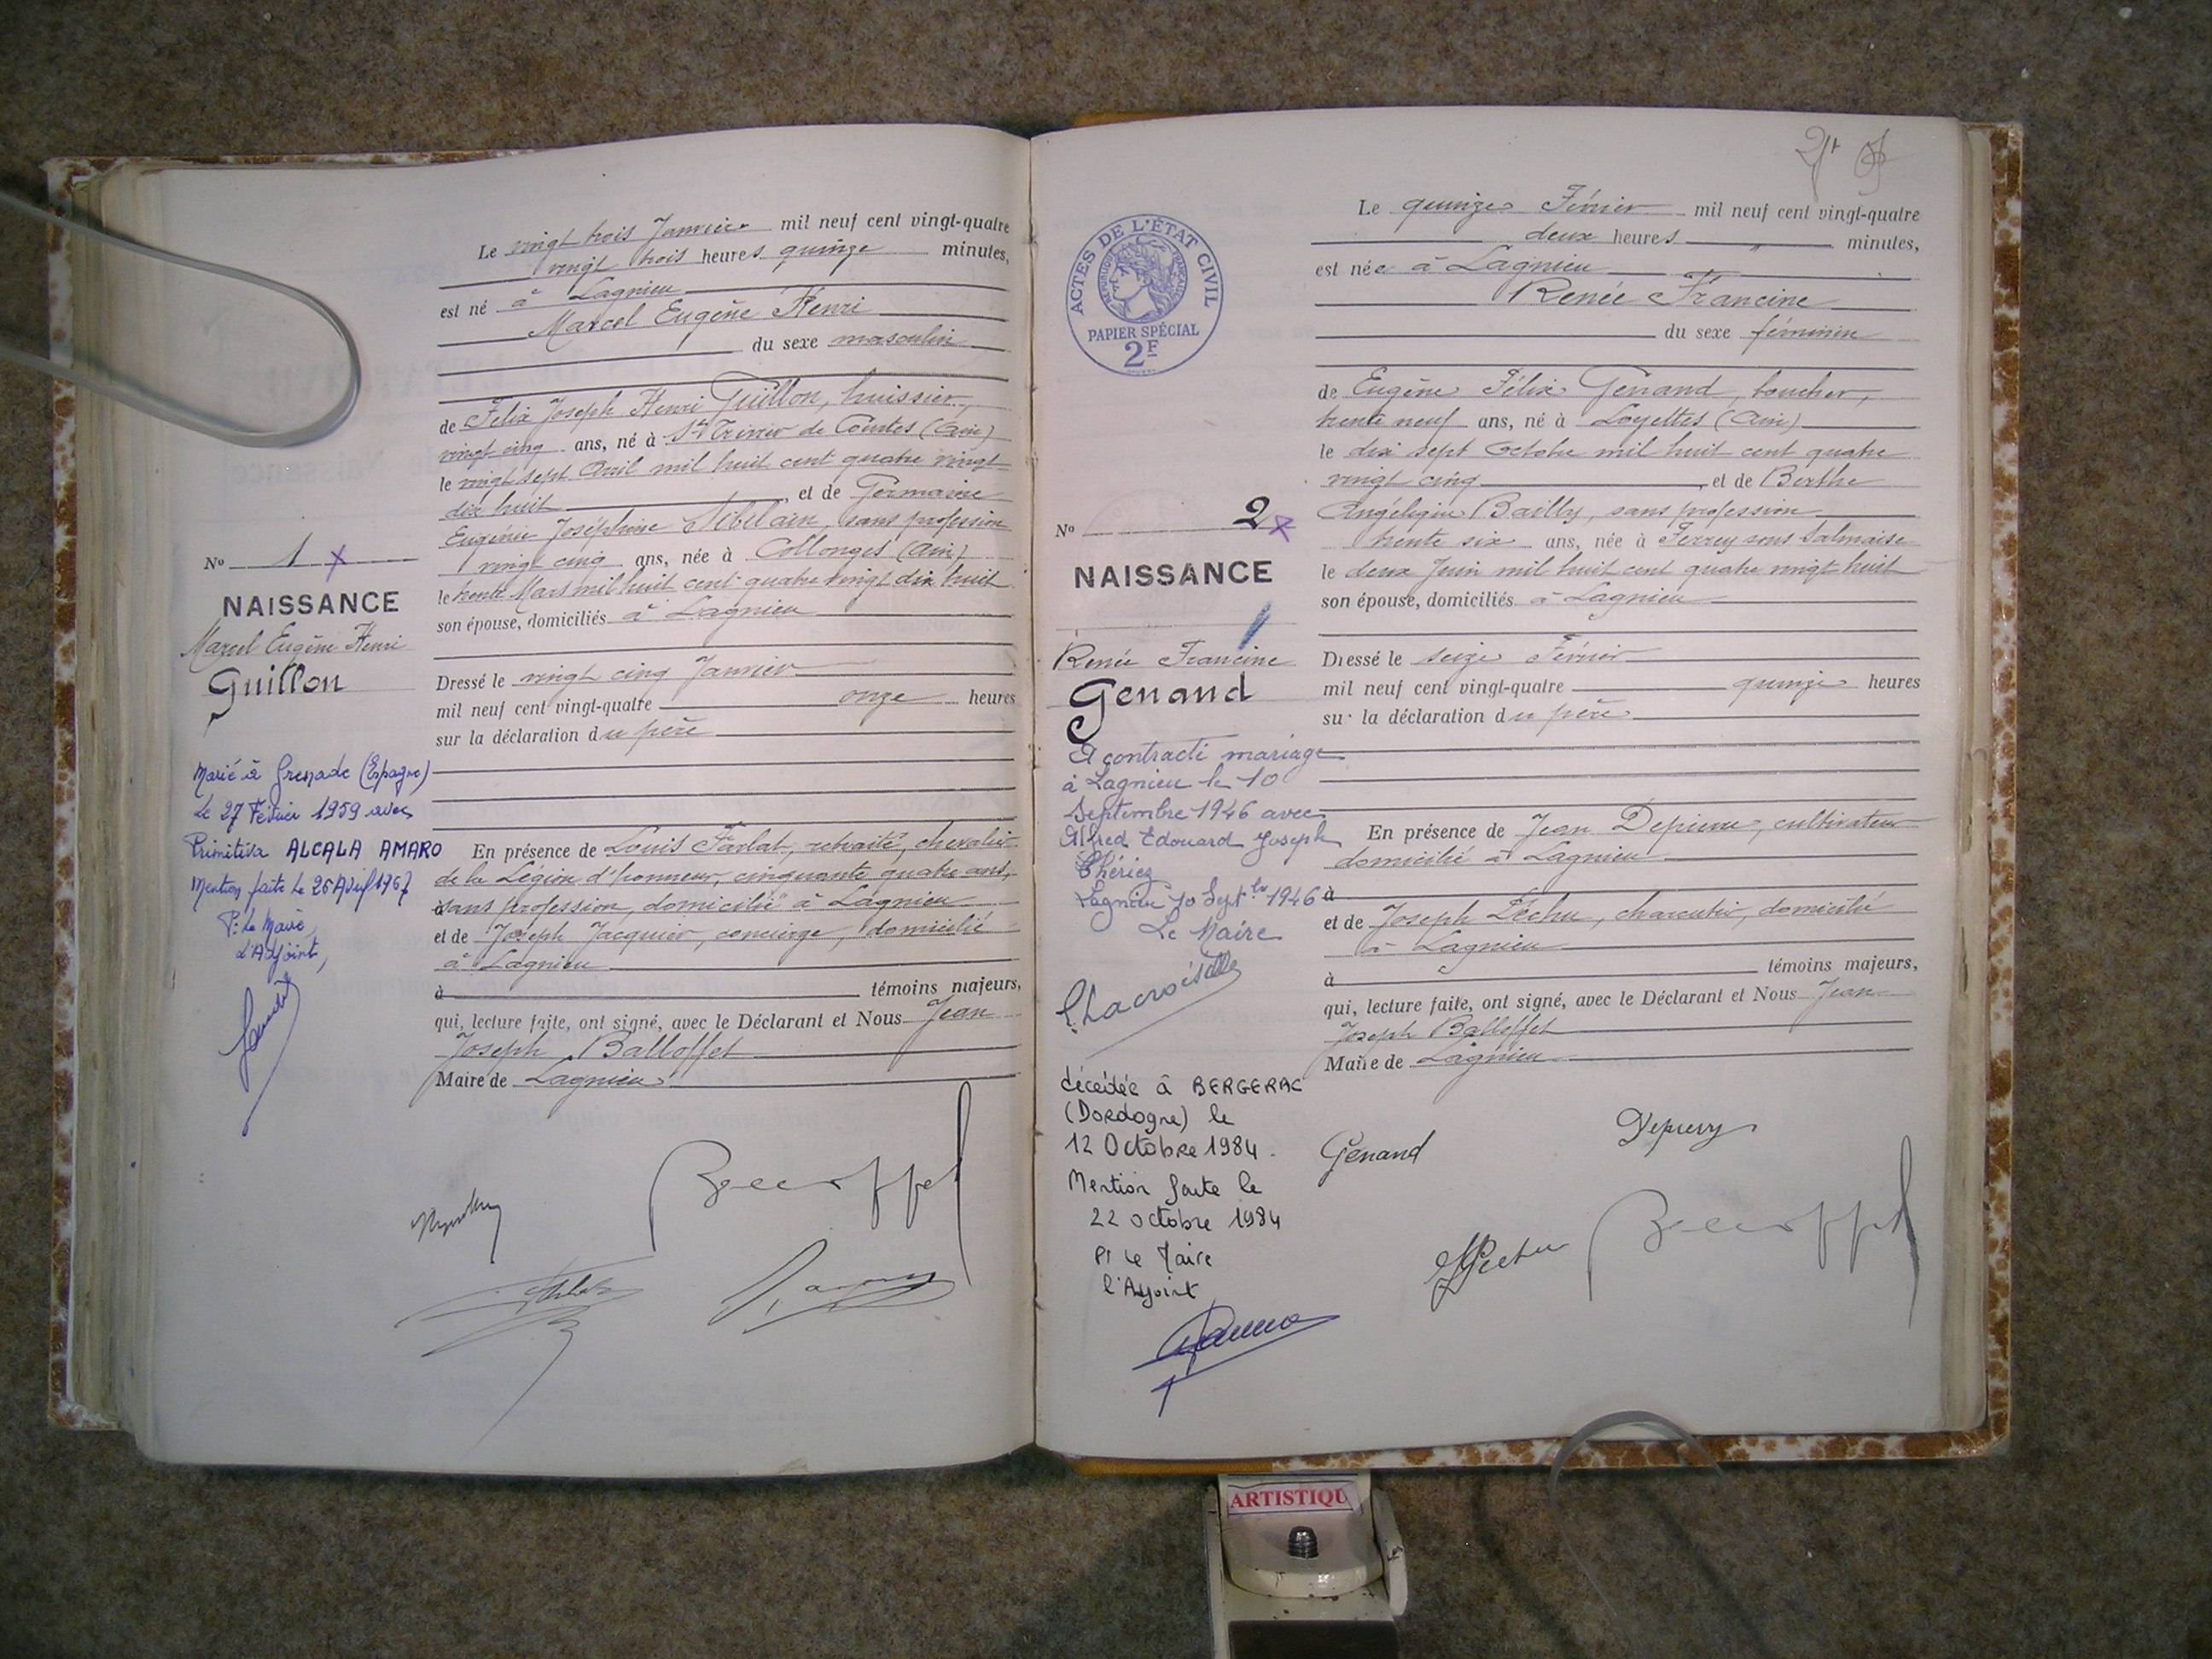 Le vingt trois Janvier mil neuf cent vingt-quatre
vingt trois heures quinze minutes,
est né à Lagnieu
Marcel Eugène Henri
du sexe masculin
de Félix Joseph Henri Guillon, huissier,
vingt cinq ans, né à St Trivier de Courtes (Ain)
le vingt sept Avril mil huit cent quatre vingt
dix huit, et de Germaine
Eugénie Joséphine Sibelain, sans profession
vingt cinq ans, née à Collonges (Ain)
le trente Mars mil huit cent quatre vingt dix huit
son épouse, domiciliés à Lagnieu
Dressé le vingt cinq Janvier
mil neuf cent vingt-quatre onze heures
sur la déclaration du père
En présence de Louis Farlat, retraité, chevalier
de la Légion d'honneur, cinquante quatre ans,
sans profession, domicilié à Lagnieu
et de Joseph Jacquier, concierge, domicilié
à Lagnieu
à témoins majeurs,
qui, lecture faite, ont signé, avec le Déclarant et Nous Jean
Joseph Balloffet
Maire de Lagnieu
Balloffet
No 1
NAISSANCE
Marcel Eugène Henri
Guillon
Marié à Grenade (Espagne)
le 27 Février 1959 avec
Primitiva ALCALA AMARO
Mention faite le 26 Avril 1967
P. Le Maire,
L'Adjoint,
ACTES DE L'ÉTAT CIVIL
RÉPUBLIQUE FRANÇAISE
PAPIER SPÉCIAL
2F
No 2
NAISSANCE
Renée Francine
Genand
A contracté mariage
à Lagnieu le 10
Septembre 1946 avec
Alfred Edouard Joseph
Thériez
Lagnieu 10 Sept.bre 1946
Le Maire
Lacroisette
décédée à BERGERAC
(Dordogne) le
12 Octobre 1984.
Mention faite le
22 octobre 1984
Pr Le Maire
l'Adjoint
Le quinze Février mil neuf cent vingt-quatre
deux heures " minutes,
est née à Lagnieu
Renée Francine
du sexe féminin
de Eugène Félix Genand, boucher,
trente neuf ans, né à Loyettes (Ain)
le dix sept Octobre mil huit cent quatre
vingt cinq, et de Berthe
Angélique Bailly, sans profession
trente six ans, née à Ferrey sous Salmaise
le deux Juin mil huit cent quatre vingt huit
son épouse, domiciliés à Lagnieu
Dressé le seize Février
mil neuf cent vingt-quatre quinze heures
sur la déclaration du père
En présence de Jean Depierre, cultivateur
domicilié à Lagnieu
à
et de Joseph Péchu, charcutier, domicilié
à Lagnieu
à témoins majeurs,
qui, lecture faite, ont signé, avec le Déclarant et Nous Jean
Joseph Balloffet
Maire de Lagnieu
Genand
Balloffet
ARTISTIQU